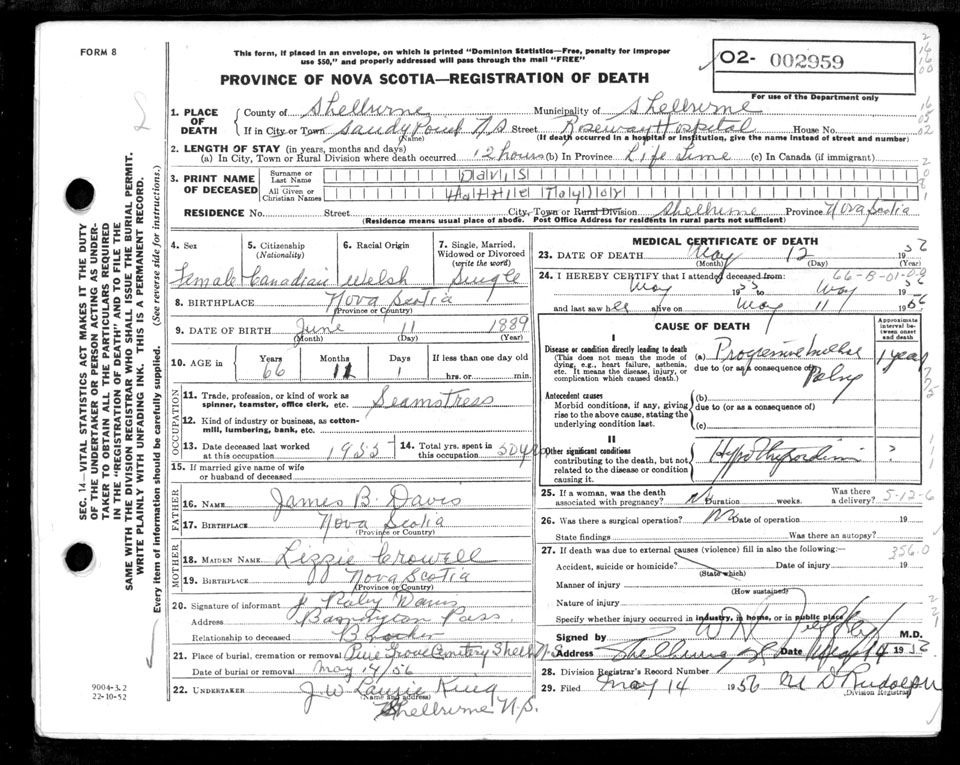 FORM 8
This form, if placed in an envelope, on which is printed "Dominion Statistics—Free, penalty for improper
use $50," and properly addressed will pass through the mail "FREE"
PROVINCE OF NOVA SCOTIA—REGISTRATION OF DEATH
O2- 002959
For use of the Department only
SEC. 14—VITAL STATISTICS ACT MAKES IT THE DUTY
OF THE UNDERTAKER OR PERSON ACTING AS UNDER-
TAKER TO OBTAIN ALL THE PARTICULARS REQUIRED
IN THE "REGISTRATION OF DEATH" AND TO FILE THE
SAME WITH THE DIVISION REGISTRAR WHO SHALL ISSUE THE BURIAL PERMIT.
WRITE PLAINLY WITH UNFADING INK. THIS IS A PERMANENT RECORD.
Every item of information should be carefully supplied. (See reverse side for instructions.)
1. PLACE OF DEATH
County of Shelburne Municipality of Shelburne
If in City or Town Sandy Point N S Street Roseway Hospital House No.
(Name) (If death occurred in a hospital or institution, give the name instead of street and number)
2. LENGTH OF STAY (in years, months and days)
(a) In City, Town or Rural Division where death occurred 12 hours (b) In Province Life Time (c) In Canada (if immigrant)
3. PRINT NAME OF DECEASED
Surname or Last Name Davis
All Given or Christian Names Hattie Taylor
RESIDENCE No. Street City, Town or Rural Division Shelburne Province Nova Scotia
(Residence means usual place of abode. Post Office Address for residents in rural parts not sufficient)
4. Sex Female
5. Citizenship (Nationality) Canadian
6. Racial Origin Welsh
7. Single, Married, Widowed or Divorced (write the word) Single
8. BIRTHPLACE Nova Scotia
(Province or Country)
9. DATE OF BIRTH June 11 1889
(Month) (Day) (Year)
10. AGE in Years 66 Months 11 Days 1 If less than one day old
hrs. or min.
OCCUPATION
11. Trade, profession, or kind of work as
spinner, teamster, office clerk, etc. Seamstress
12. Kind of industry or business, as cotton-
mill, lumbering, bank, etc.
13. Date deceased last worked
at this occupation 1955
14. Total yrs. spent in
this occupation 50 yrs
15. If married give name of wife
or husband of deceased
FATHER
16. NAME James B. Davis
17. BIRTHPLACE Nova Scotia
(Province or Country)
MOTHER
18. MAIDEN NAME Lizzie Crowell
19. BIRTHPLACE Nova Scotia
(Province or Country)
20. Signature of informant J Roby Davis
Address Barrington Pass.
Relationship to deceased Brother
21. Place of burial, cremation or removal Pine Grove Cemetery Shelb N.S.
Date of burial or removal May 14/56
22. UNDERTAKER J. W. King
(Name and address)
Shelburne N.S.
9004-3.2
22-10-52
MEDICAL CERTIFICATE OF DEATH
23. DATE OF DEATH May 12 56
(Month) (Day) (Year)
66-8-01-0-9
24. I HEREBY CERTIFY that I attended deceased from:
May 1955 May 1956
and last saw her alive on May 11 1956
CAUSE OF DEATH
Approximate interval between onset and death
I
Disease or condition directly leading to death
(This does not mean the mode of dying, e.g., heart failure, asthenia, etc. It means the disease, injury, or complication which caused death.)
(a) Progressive Bulbar Palsy 1 year
due to (or as a consequence of)
Antecedent causes
Morbid conditions, if any, giving rise to the above cause, stating the underlying condition last.
(b)
due to (or as a consequence of)
(c)
II
Other significant conditions
contributing to the death, but not related to the disease or condition causing it.
?
25. If a woman, was the death associated with pregnancy? No Duration weeks. Was there a delivery? 5-12-6
26. Was there a surgical operation? No Date of operation 19
State findings Was there an autopsy?
27. If death was due to external causes (violence) fill in also the following:— 356.0
Accident, suicide or homicide? Date of injury 19
(State which)
Manner of injury
(How sustained)
Nature of injury
Specify whether injury occurred in industry, in home, or in public place
Signed by M.D.
Address Shelburne Date 14 19
28. Division Registrar's Record Number
29. Filed May 14 1956 Rudolph
Division Registrar